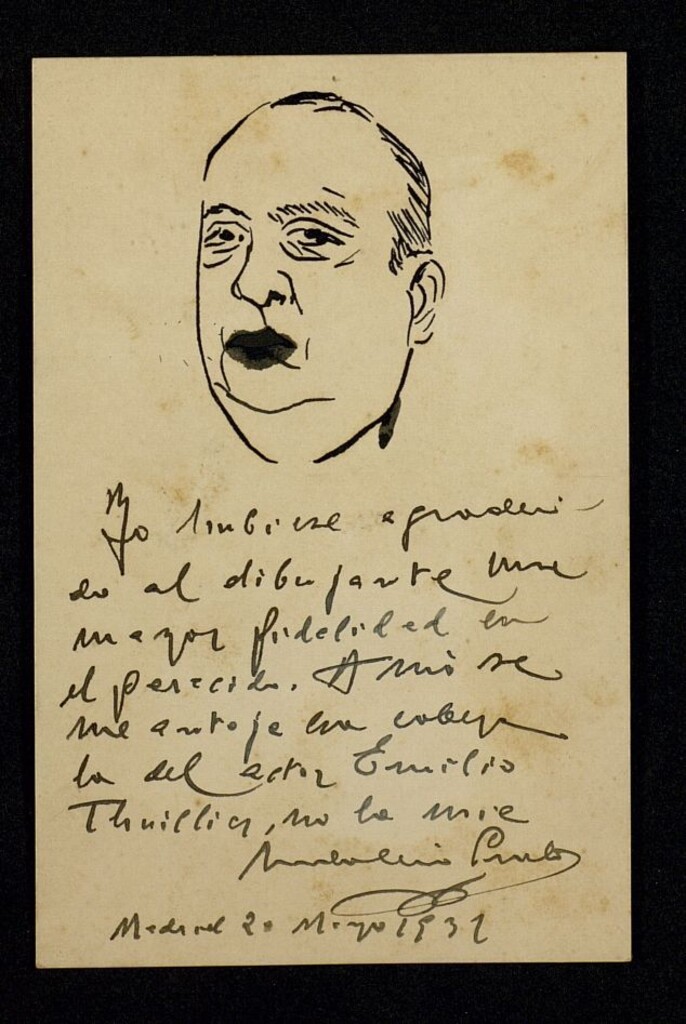 Yo hubiese agradeci-
do al dibujante una
mayor fidelidad en
el parecido. A mi se
me antoja esa cabeza
la del actor Emilio
Thuillier, no la mia
Indalecio Prieto
Madrid 20 Mayo 1931